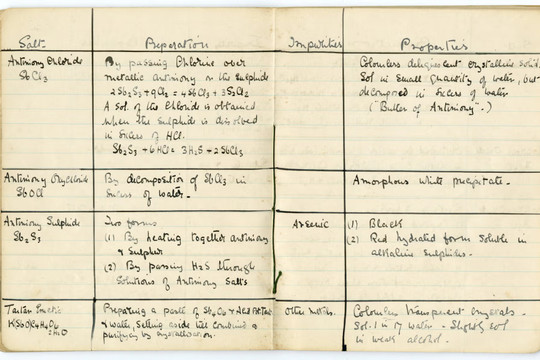 Salt Preparation Impurities Properties
Antimony Chloride
SbCl3
By passing Chlorine over
metallic antimony or the Sulphide
2Sb2S3 + 9Cl2 = 4SbCl3 + 3S2Cl2
A Sol. of the Chloride is obtained
when the Sulphide is dissolved
in Excess of HCl.
Sb2S3 + 6HCl = 3H2S + 2SbCl3
Colourless deliquescent crystalline solid.
Sol in Small Quantity of water, but
decomposed in Excess of water
("Butter of Antimony".)
Antimony Oxychloride
SbOCl
By decomposition of SbCl3 in
Excess of water.
Amorphous white precipitate.
Antimony Sulphide
Sb2S3
Two forms
(1) By heating together antimony
& Sulphur
(2) By passing H2S through
Solutions of Antimony Salts
Arsenic
(1) Black
(2) Red hydrated form Soluble in
alkaline Sulphides.
Tartar Emetic
Preparing a paste of Sb4O6 + Acid Pot Tart
& water, Setting aside till Combined &
purifying by crystallization.
Other Metals.
Colourless transparent crystals.
Sol. 1 in 17 water. Slightly sol
in weak alcohol.